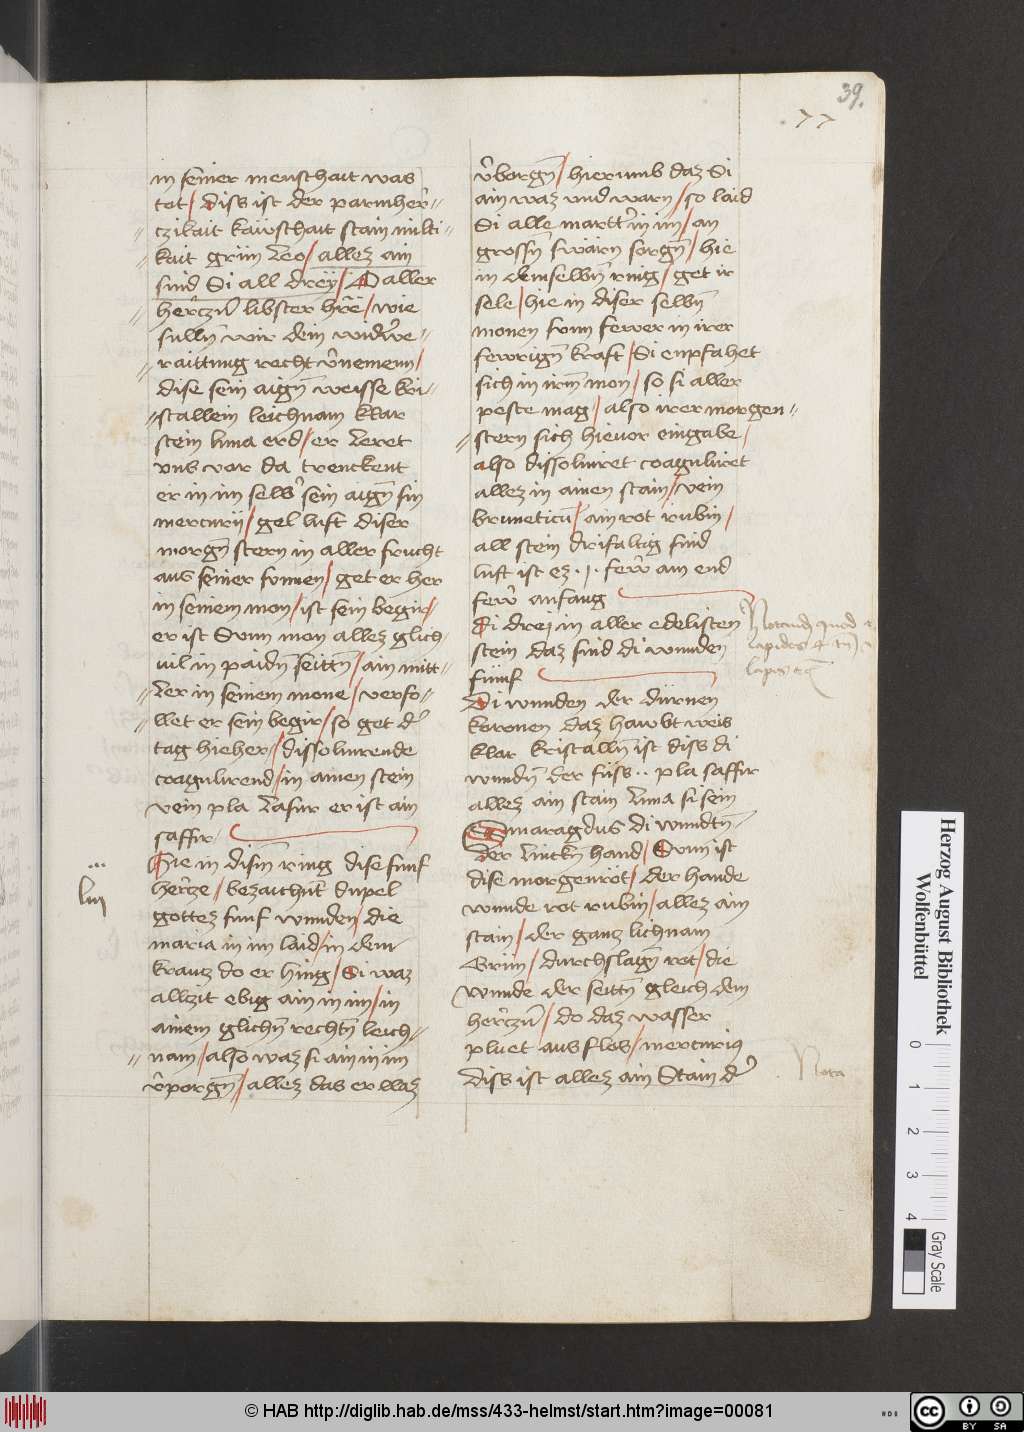 39.
77
in seiner menschait was
tot / diss ist der parmher-
czikait kaüschait stain milti
kait grün leo / allez ain
sind Si all dreÿ / O aller
herczn libster hre / wie
sulln wir dein widwe-
raittung recht vnemenn /
dise sein aign weisse kri-
stallein leichnam klar
stein luna erd / er leret
vns vor da trenckent
er in im selb sein aign sin
mercurij / gel luft diser
morgn stern in aller frucht
aus seiner sonnen / get er her
in seinem mon / ist sein begir /
er ist Sunn mon allez glich
vil in paidn seittn / ain mitt-
ler in seinem mone / verso-
llet er sein begir / so get d
tag hieher / dissoluirende
coagulirend / in ainen stein
vein pla lasur er ist ain
saffir
Hie in disin ring dise funf
hercze / bezaichnt
gottez funf wunden / die
maria in im laid / in dem
krantz do er hing / Si waz
allczit ebig ain in im / in
ainem glichn rechtn leich-
nam / also waz si ain in im
vporgn / allez das er waz
vborgn / hierumb daz Si
ain waz vnd warn / so laid
Si alle martter in im / an
grossn swärn sorgn / hie
in demselbn ring / get ir
sele / hie in diser selbn
monen sunn fewer in irer
fewrign kraft / Si enpfahet
sich in irm mon / so si aller
peste mag / also irer morgen-
stern sich hieuor eingabe /
also dissoluiret coaguliret
allez in ainen stain / vein
bruneticu / ain rot rubin /
all stein drifaltig sind
luft ist ez .j. few am end
few anfang
Si drej in aller edelisten
stein daz sind di wunden
fünf
Di wunden der dürnen
koronen daz hawbt weis
klar kristalln ist diss di
wundn der füss .. pla saffir
allez ain stain luna si sein
Smaragdus di wundn
der linckn hand / Sunn ist
dise morgenröt / der hande
wunde rot rubin / allez ain
stain / der gantz lichnam
Grün / durchslagn rot / die
wunde der seittn gleich dem
herczn / do daz wasser
pluet aus flos / mercurius
diss ist allez ain Stain d
Notand quod
lapides
lapis
Nota
Herzog August Bibliothek
Wolfenbüttel
0 1 2 3 4
Gray Scale
© HAB http://diglib.hab.de/mss/433-helmst/start.htm?image=00081
HAB
cc BY SA